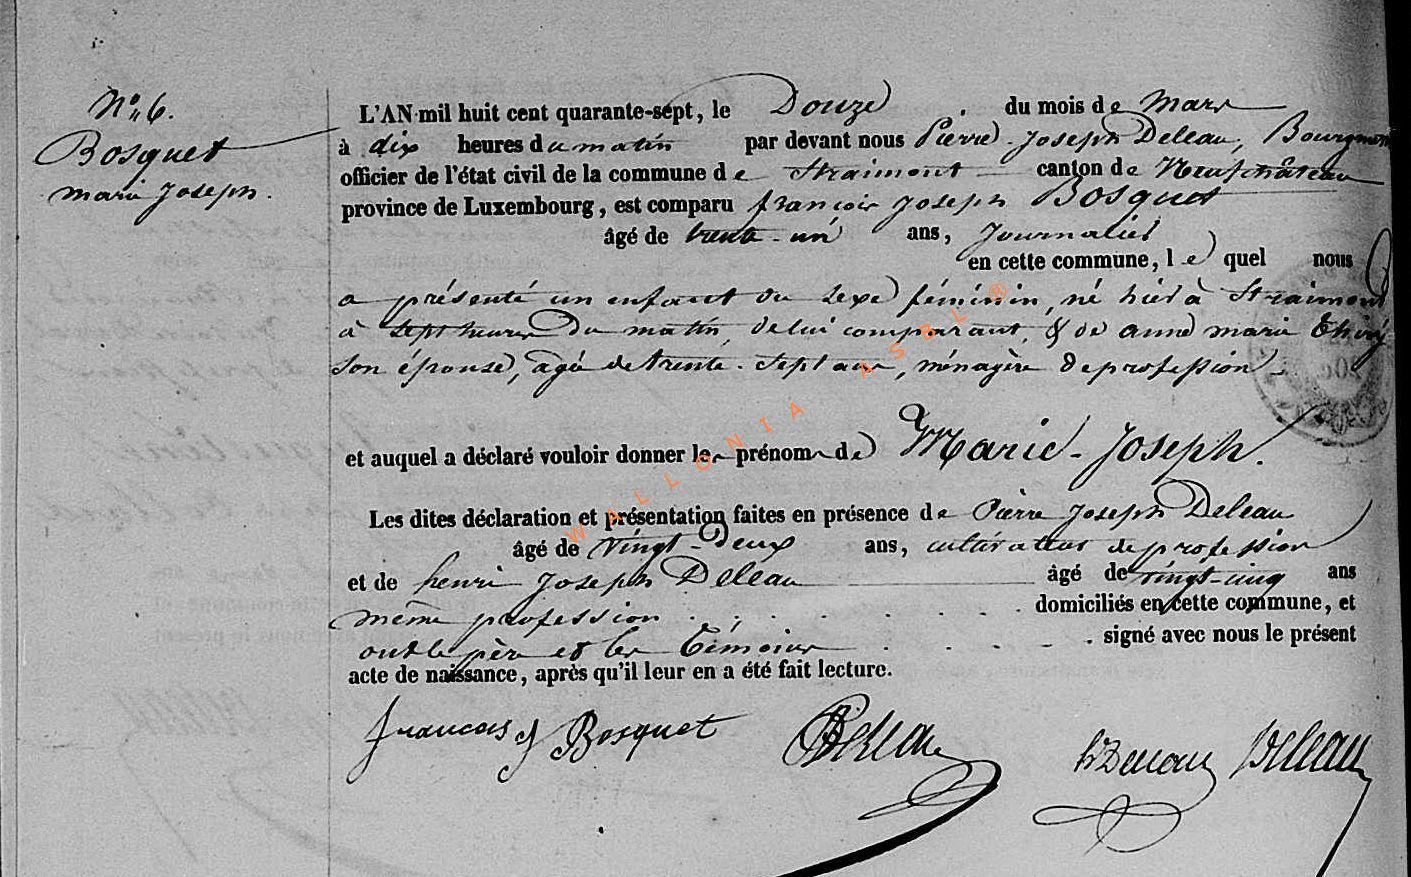 N° 6.
Bosquet
marie Joseph.
L'AN mil huit cent quarante-sept, le Douze du mois de Mars
à dix heures du matin par devant nous Pierre Joseph Deleau, Bourgmestre
officier de l'état civil de la commune de Straimont canton de Neufchâteau
province de Luxembourg, est comparu françois Joseph Bosquet
âgé de trente-un ans, Journalier
en cette commune, le quel nous
a présenté un enfant du sexe féminin, né hier à Straimont
à sept heures du matin, de lui comparant, & de anne marie
son épouse, agée de trente-sept ans, ménagère de profession
et auquel a déclaré vouloir donner les prénoms de Marie-Joseph.
Les dites déclaration et présentation faites en présence de Pierre Joseph Deleau
âgé de vingt-deux ans, cultivateur de profession
et de henri Joseph Deleau âgé de vingt-cinq ans
même profession domiciliés en cette commune, et
ont le père et les témoins signé avec nous le présent
acte de naissance, après qu'il leur en a été fait lecture.
francois J Bosquet Deleau hDeleau Deleau
WALLONIA ASBL ®